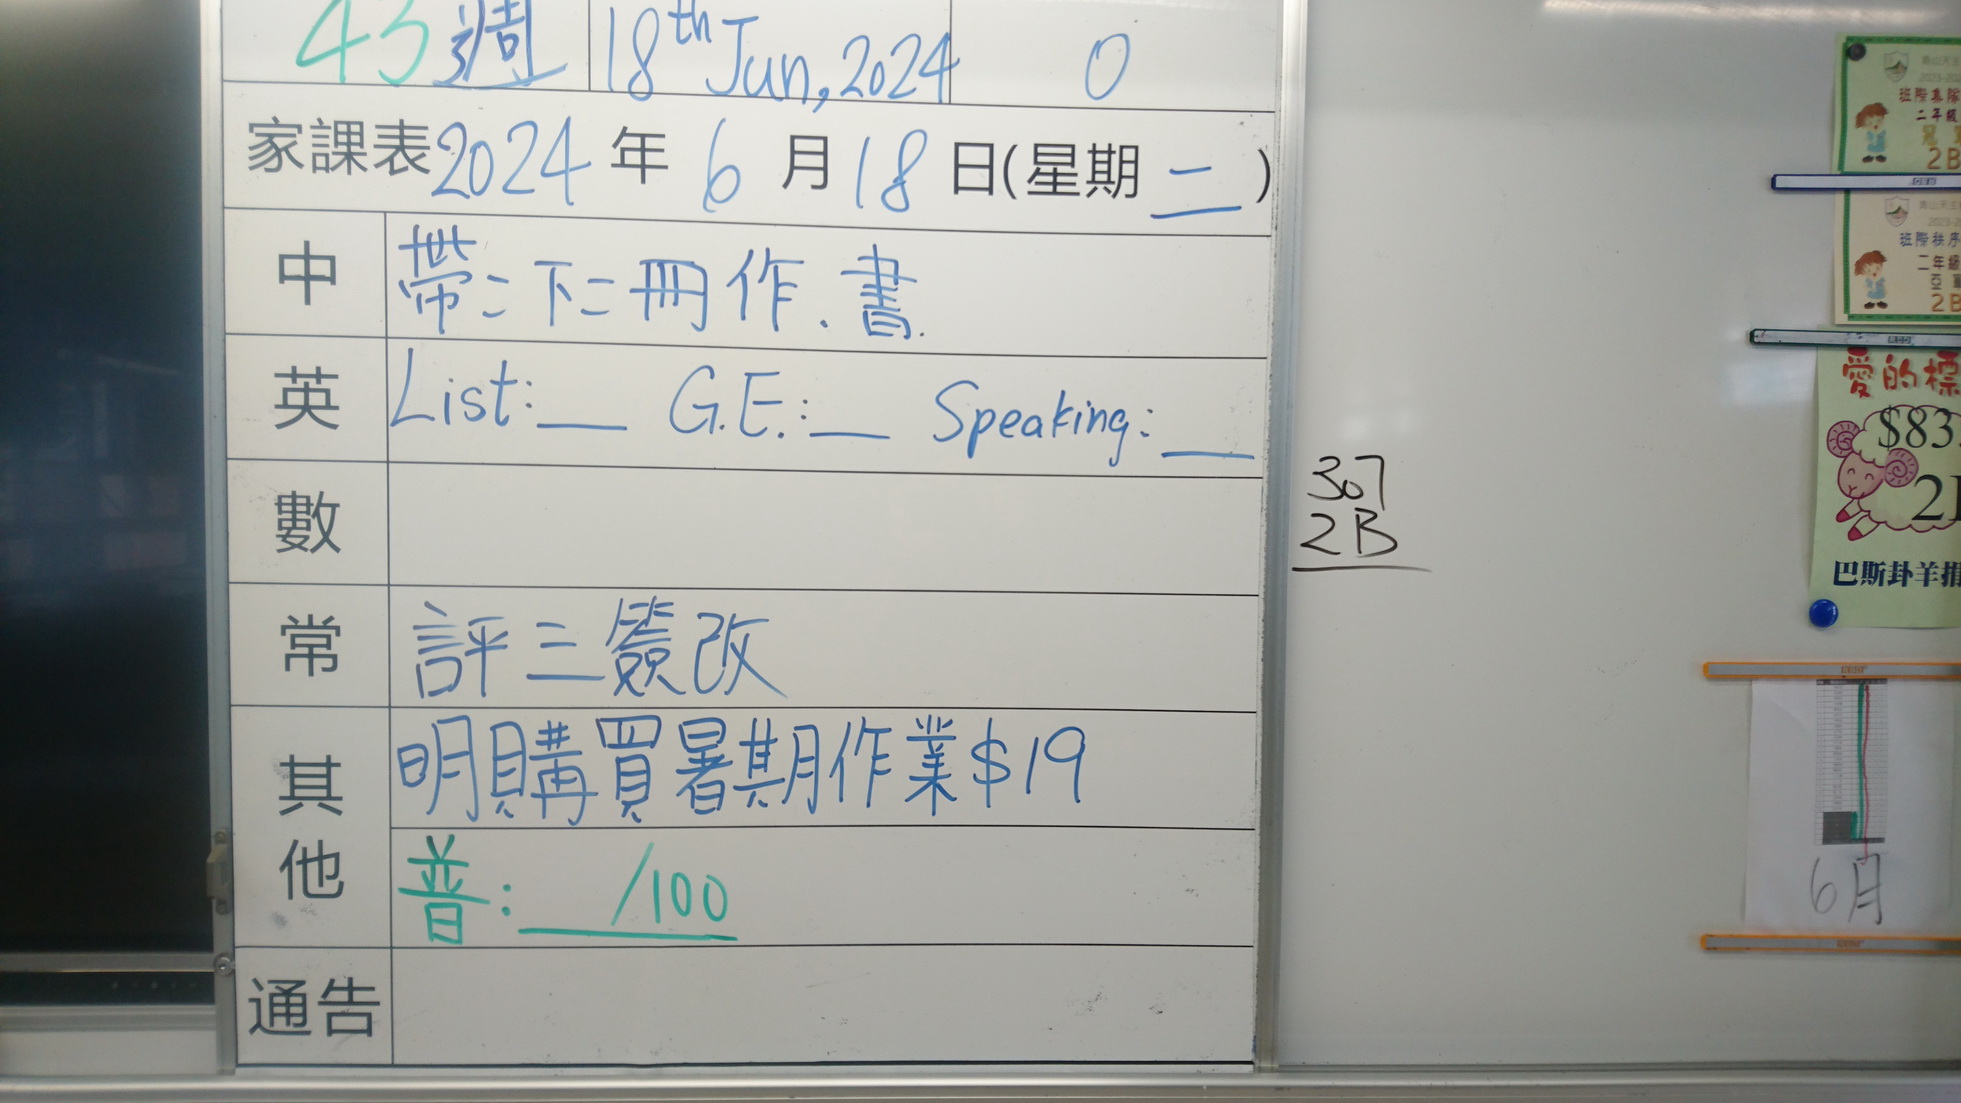 43週 18th Jun, 2024 0
家課表2024年6月18日(星期二)
中 帶二下二冊作.書.
英 List:__ G.E.:__ Speaking:__
數
常 評三簽改
其他 明購買暑期作業$19
普:__/100
通告
307
2B
2023-20
班際集隊
二年級
2B
青山天主
2023-2
班際秩序
二年級
亞
2B
愛的標
$83
2
巴斯卦羊捐
6月